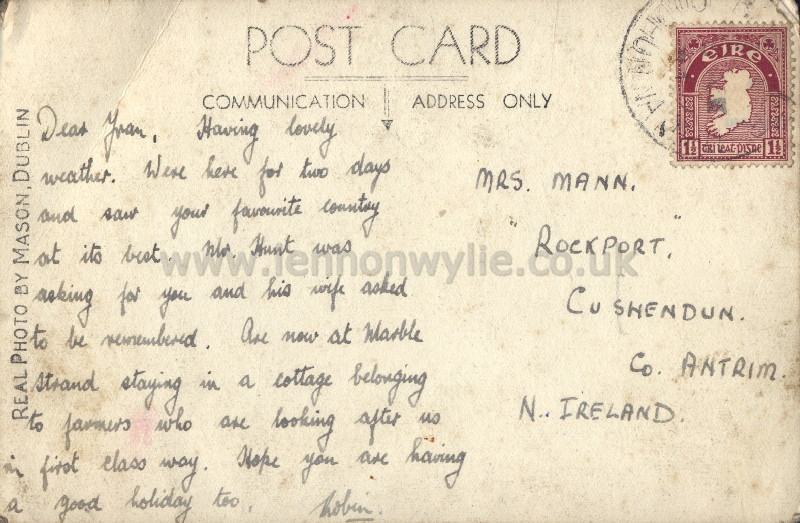 POST CARD
COMMUNICATION
ADDRESS ONLY
REAL PHOTO BY MASON, DUBLIN
Dear Yvan, Having lovely
weather. Were here for two days
and saw your favourite country
at its best. Mr. Hunt was
asking for you and his wife asked
to be remembered. Are now at Marble
Strand staying in a cottage belonging
to farmers who are looking after us
in first class way. Hope you are having
a good holiday too. Robin.
MRS. MANN.
"ROCKPORT,"
CUSHENDUN.
Co. ANTRIM.
N. IRELAND.
éIRe
1½ 1½
www.lennonwylie.co.uk